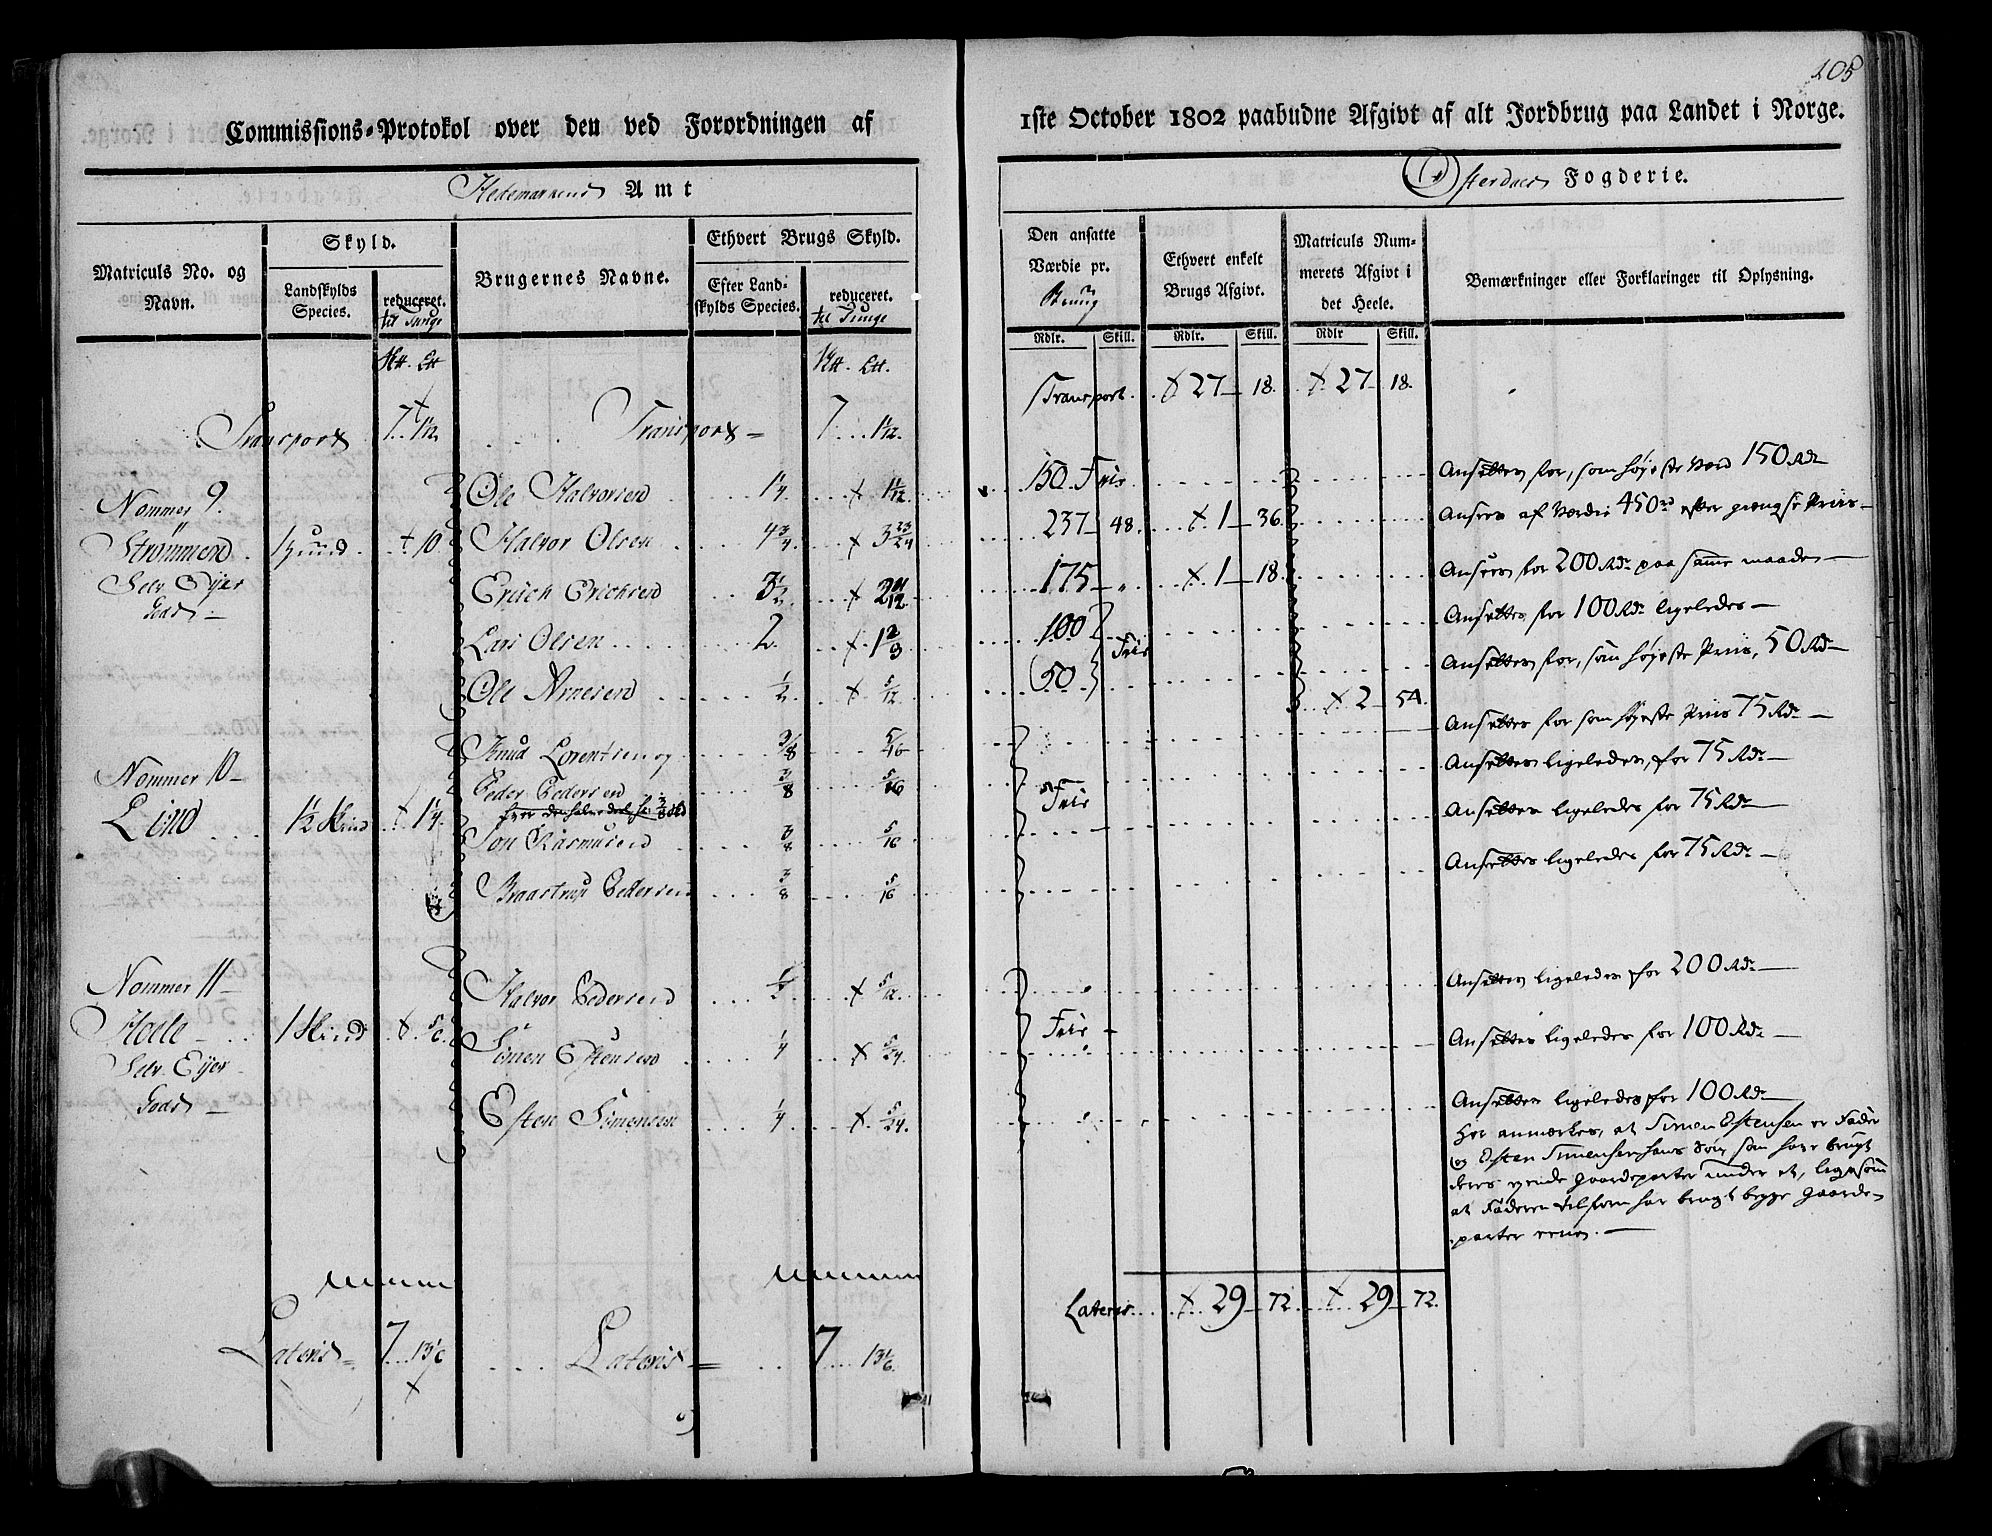 105
Commissions-Protokol over den ved Forordningen af
1ste October 1802 paabudne Afgivt af alt Jordbrug paa Landet i Norge.
Hedemarkens Amt
Østerdals Fogderie.
Matriculs No. og Navn.
Skyld.
Landskylds Species.
reduceret. til Tunge
Brugernes Navne.
Ethvert Brugs Skyld.
Efter Landskylds Species.
reduceret. til Tunge
Den ansatte Værdie pr. Brug
Ethvert enkelt Brugs Afgivt.
Matriculs Nummerets Afgivt i det Heele.
Bemærkninger eller Forklaringer til Oplysning.
Rdlr. Skill. Rdlr. Skill. Rdlr Skill.
Transport 7 1 1/2 Transport 7 1 1/12.
Transport 27 18. 27 18.
Nommer 9.
Strømmen 1 Hund 10
Selv Eyer
Gods
Ole Halvorsen 1 1/4 1 1/12 150. Frie Ansættes for, som høyeste Værd 150 Rdr
Halvor Olsen 4 3/4 3 23/24 237 48. 1 36. Ansees af Værdie 450 rd efter gængse Priis
Erich Erichsen 3 1/2 2 11/12 175 " 1 18. Ansees for 200 Rdr paa samme maade
Lars Olsen 2 1 2/3 100 Frie Ansættes for 100 Rdr ligeledes
Ole Arnesen 1/2 5/12 50 Ansættes for, som høyeste Priis, 50 Rdr
2 54.
Nommer 10
Lind 1 1/2 Skind 1 1/4
Knud Lorentsen og 3/8 5/16 Ansættes for som høyeste Priis 75 Rdr
Peder Pedersen 3/8 5/16 Frie Ansættes ligeledes, for 75 Rdr
Jon Rasmusen 3/8 5/16 Ansættes ligeledes for 75 Rdr
Braastrup Pedersen 3/8 5/16 Ansættes ligeledes for 75 Rdr
Nommer 11
Hoele 1 Skind 5/6
Selv Eyer
Gods
Halvor Pedersen 1/2 5/12. Ansættes ligeledes for 200 Rdr
Simen Estensen 1/4 5/24. Frie Ansættes ligeledes for 100 Rdr
Esten Simensen 1/4 5/24. Ansættes ligeledes for 100 Rdr
Her anmærkes, at Simen Estensen er Fader
og Esten Simensen hans Søn som have brugt
deres Gaardeparter under et, ligesom
at Faderen tilforn har brugt begge Gaarde-
parter
Lateris 7 13 1/6 Lateris 7 13 1/6.
Lateris 29 72 29 72.